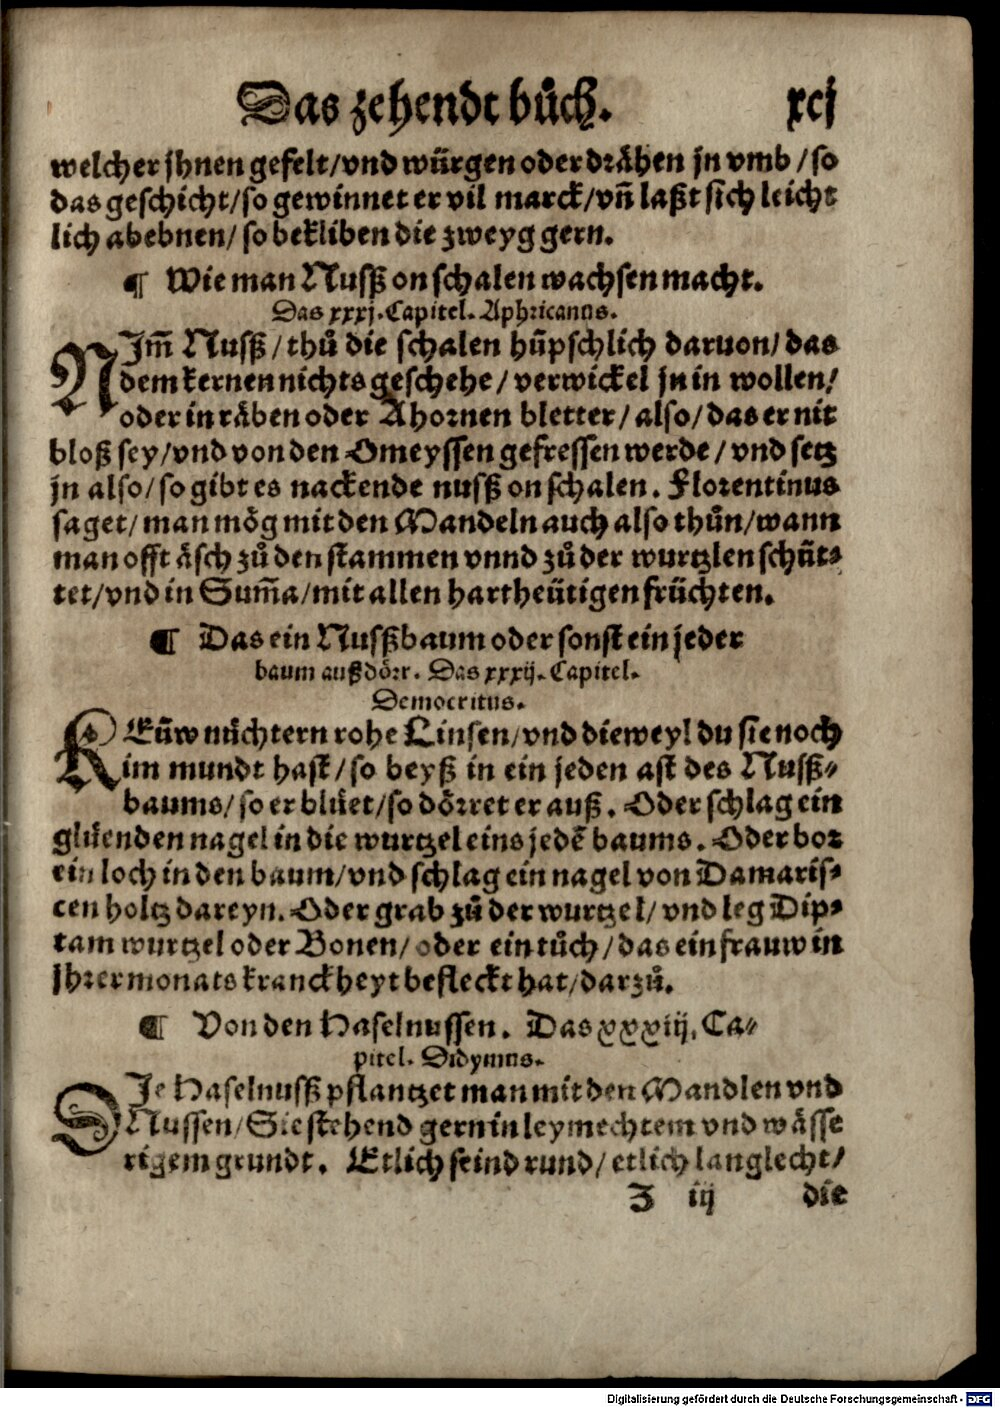 Das zehendt bůch. xcj
welcher jhnen gefelt/vnd würgen oder drähen jn vmb/so
das geschicht/so gewinnet er vil marck/vñ laßt sich leicht
lich abebnen/so bekliben die zweyg gern.
¶ Wie man Nussz on schalen wachsen macht.
Das xxxj. Capitel. Aphricanus.
NJm̃ Nussz/thů die schalen hüpschlich daruon/das
dem kernen nichts geschehe/verwickel jn in wollen/
oder in räben oder Ahornen bletter/also/das er nit
bloß sey/vnd von den Omeyssen gefressen werde/vnd setz
jn also/so gibt es nackende nussz on schalen. Florentinus
saget/man mög mit den Mandeln auch also thůn/wann
man offt äsch zů den stammen vnnd zů der wurtzlen schüt⸗
tet/vnd in Sum̃a/mit allen hartheütigen früchten.
¶ Das ein Nusszbaum oder sonst ein jeder
baum außdörr. Das xxxij. Capitel.
Democritus.
KEüw nüchtern rohe Linsen/vnd dieweyl du sie noch
im mundt hast/so beyß in ein jeden ast des Nussz⸗
baums/so er blüet/so dörret er auß. Oder schlag ein
glüenden nagel in die wurtzel eins jedẽ baums. Oder bor
ein loch in den baum/vnd schlag ein nagel von Damaris⸗
cen holtz dareyn. Oder grab zů der wurtzel/vnd leg Dip⸗
tam wurtzel oder Bonen/oder ein tůch/das ein frauw in
jhrer monats kranckheyt befleckt hat/darzů.
¶ Von den Haselnussen. Das xxxiij. Ca⸗
pitel. Didymus.
DJe Haselnussz pflantzet man mit den Mandlen vnd
Nussen/Sie stehend gern in leymechtem vnd wässe
rigem grundt. Etlich seind rund/etlich langlecht/
J iij die
Digitalisierung gefördert durch die Deutsche Forschungsgemeinschaft - DFG